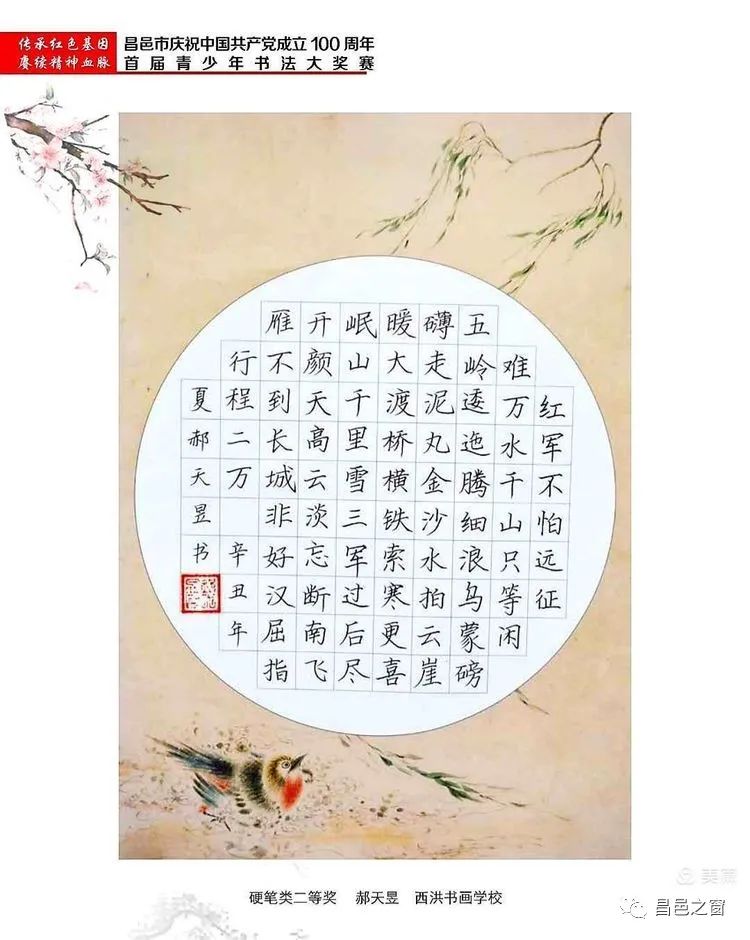 传承红色基因
赓续精神血脉
昌邑市庆祝中国共产党成立100周年
首届青少年书法大奖赛
红军不怕远征
难万水千山只等闲
五岭逶迤腾细浪乌蒙磅
礴走泥丸金沙水拍云崖
暖大渡桥横铁索寒更喜
岷山千里雪三军过后尽
开颜天高云淡忘断南飞
雁不到长城非好汉屈指
行程二万 辛丑年
夏郝天昱书
硬笔类二等奖 郝天昱 西洪书画学校
美篇
昌邑之窗